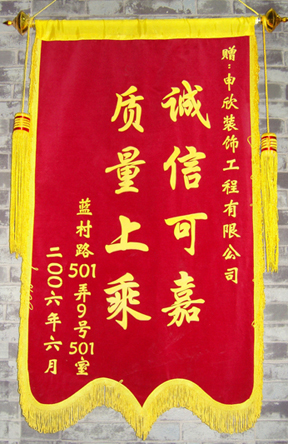 赠:申欣装饰工程有限公司
诚信可嘉
质量上乘
蓝村路501弄9号501室
二00六年六月